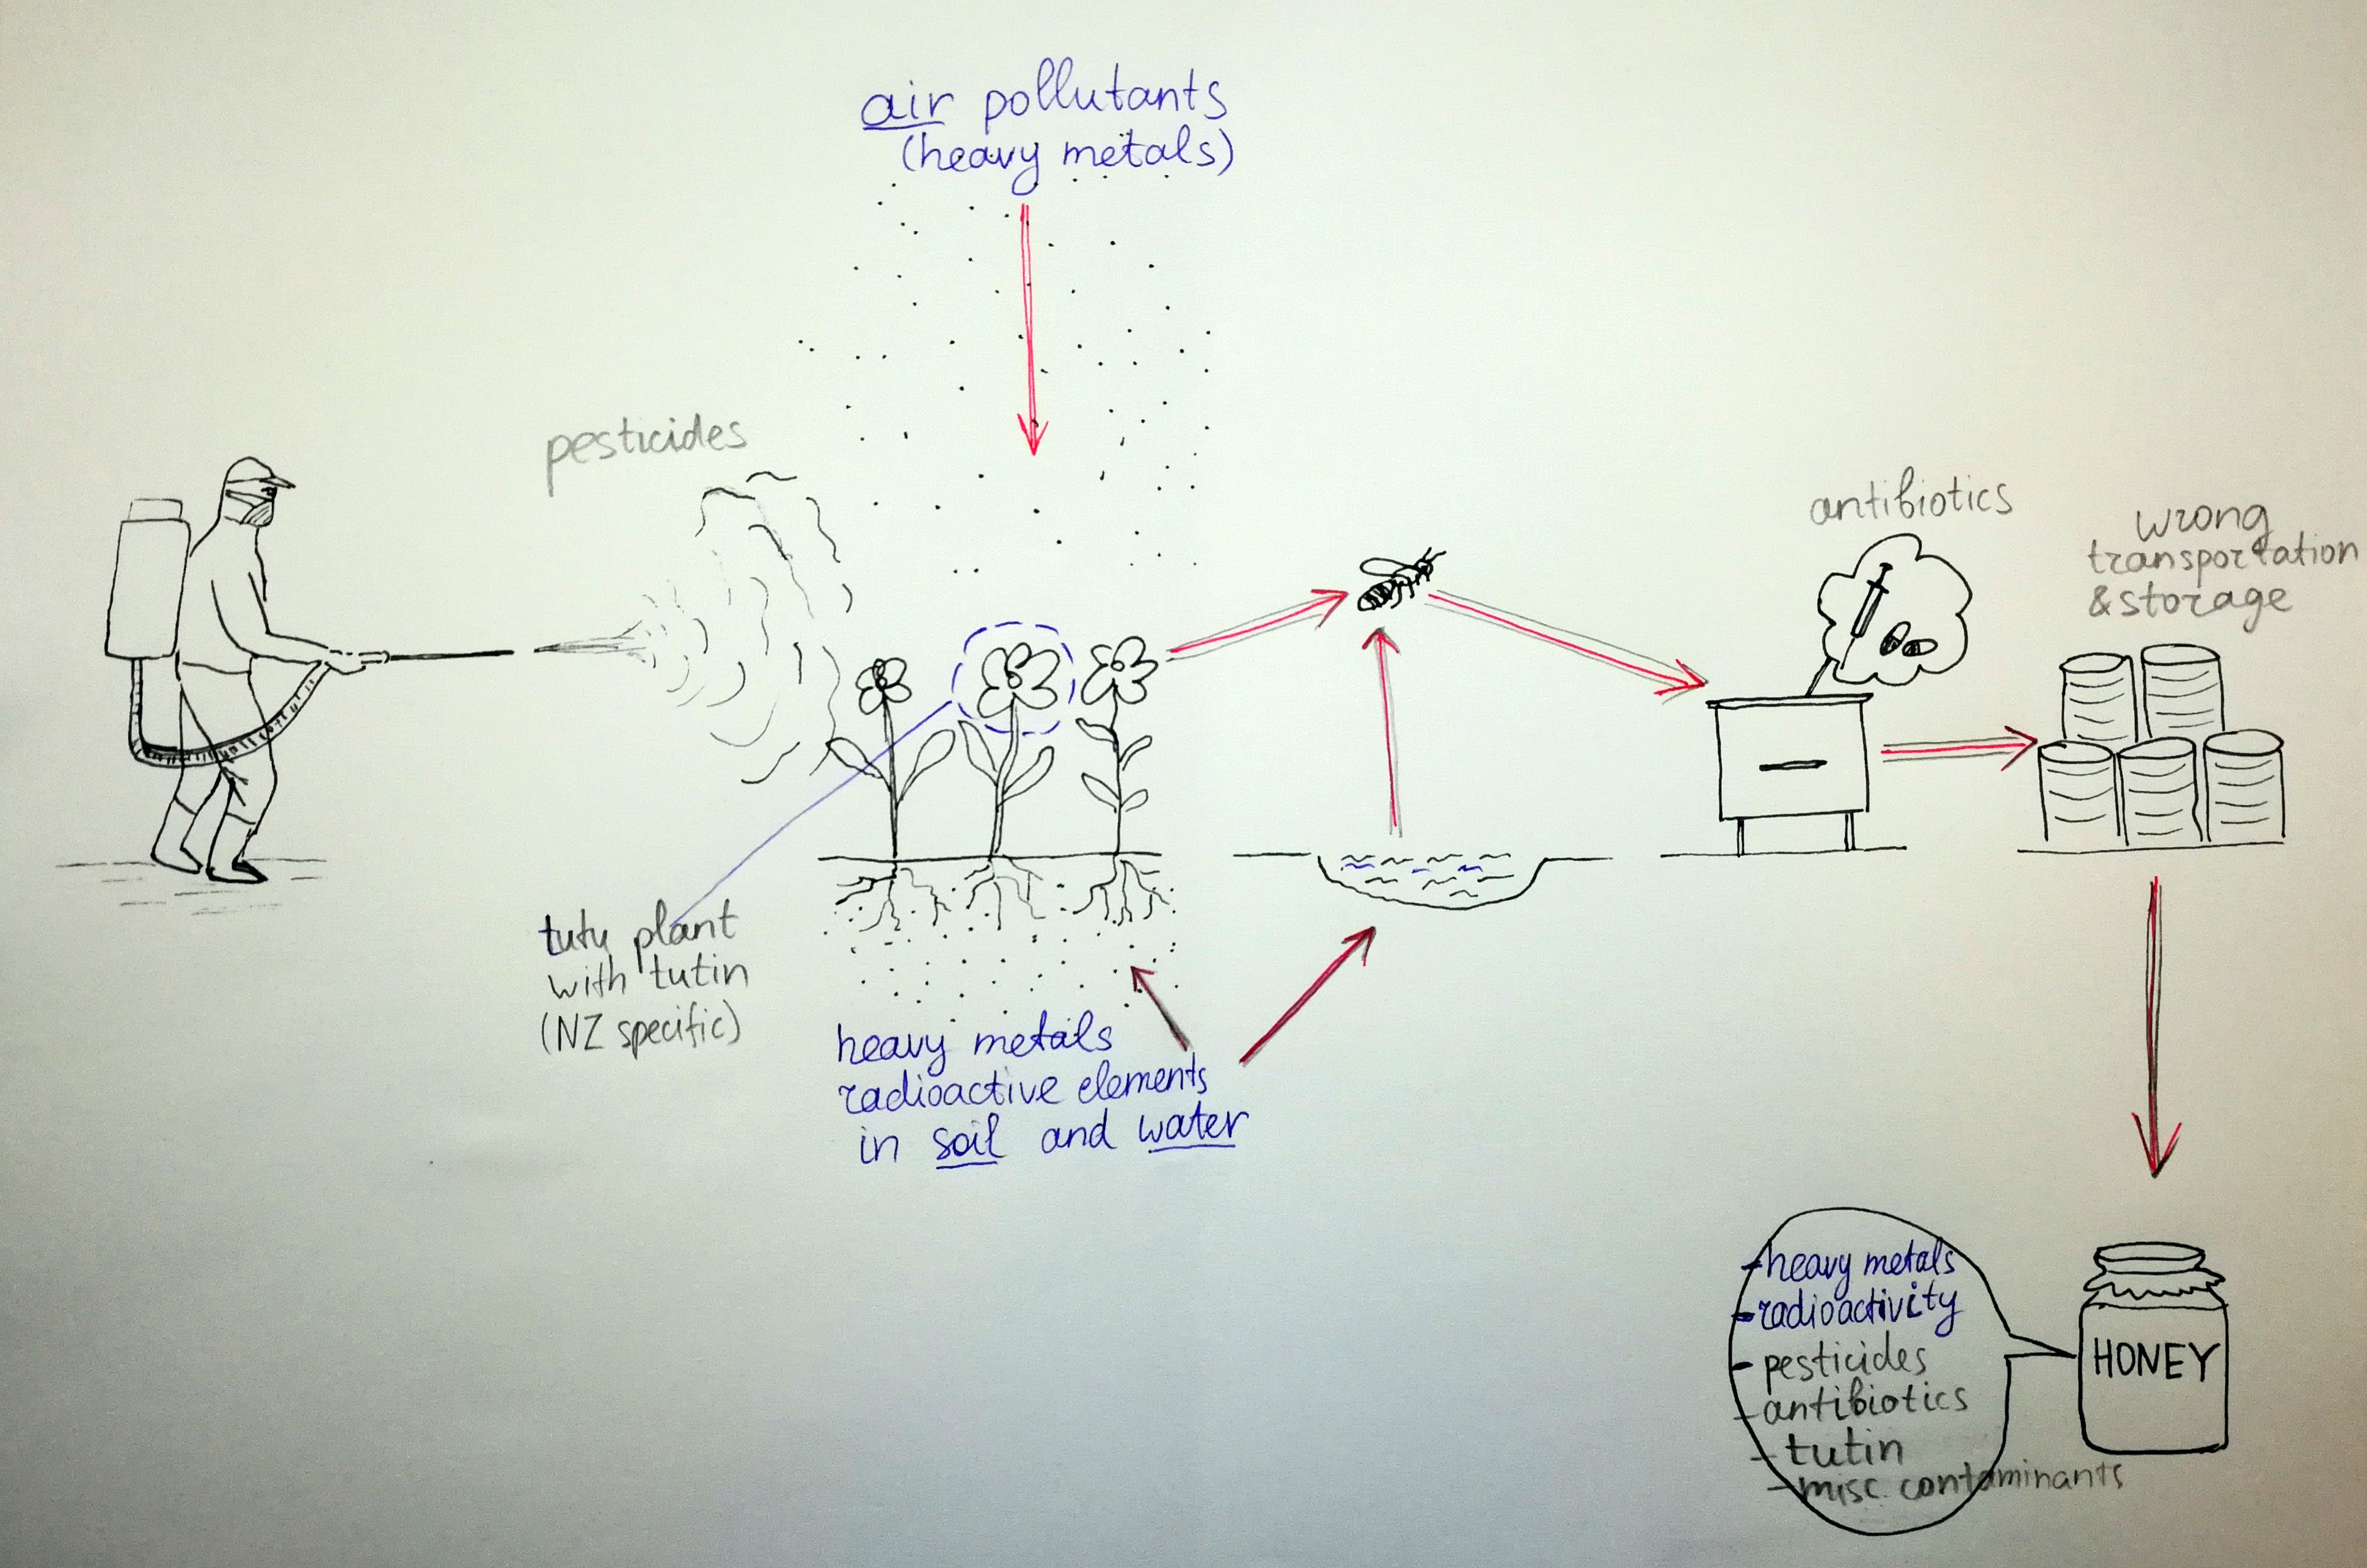 air pollutants
(heavy metals)
pesticides
antibiotics
wrong
transportation
& storage
tuty plant
with tutin
(NZ specific)
heavy metals
radioactive elements
in soil and water
- heavy metals
- radioactivity
- pesticides
- antibiotics
- tutin
- misc. contaminants
HONEY